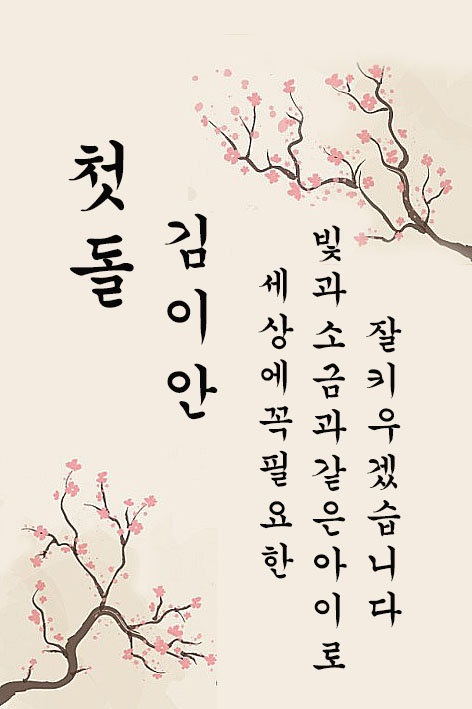 첫돌
김이안
세상에꼭필요한
빛과소금과같은아이로
잘키우겠습니다